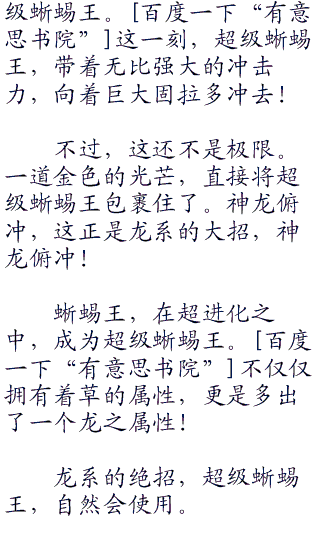 级蜥蜴王。[百度一下“有意
思书院”]这一刻，超级蜥蜴
王，带着无比强大的冲击
力，向着巨大固拉多冲去！
不过，这还不是极限。
一道金色的光芒，直接将超
级蜥蜴王包裹住了。神龙俯
冲，这正是龙系的大招，神
龙俯冲！
蜥蜴王，在超进化之
中，成为超级蜥蜴王。[百度
一下“有意思书院”]不仅仅
拥有着草的属性，更是多出
了一个龙之属性！
龙系的绝招，超级蜥蜴
王，自然会使用。